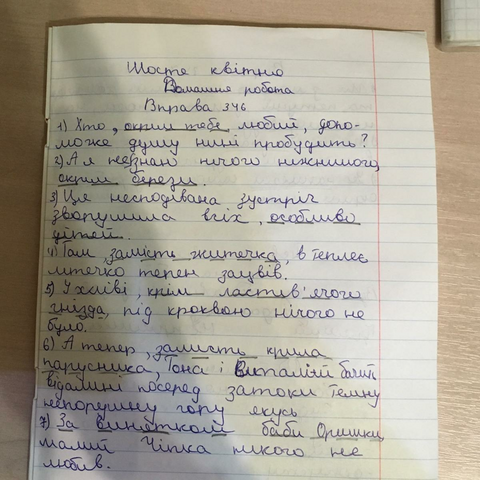 Шосте квітня
Домашня робота
Вправа 346
1) Хто, окрім тебе, любий, допо-
може душу мині пробудить?
2) А я не знаю нічого ніжнішого,
окрім берези.
3) Ця несподівана зустріч
зворушила всіх, особливо
дітей.
4) Там, замість житечка, в тепле є
літечко терен зацвів.
5) У хліві, крім ластів'ячого
гнізда, під кроквою нічого не
було.
6) А тепер, замість крила
парусника, Тоня і Віталій бачить
віддалині посеред затоки темну
непорушну гору якусь
7) За винятком баби Оришки,
малий Чіпка никого не
любив.